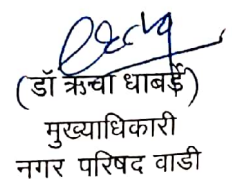 (डॉ ऋचा धाबर्डे)
मुख्याधिकारी
नगर परिषद वाडी